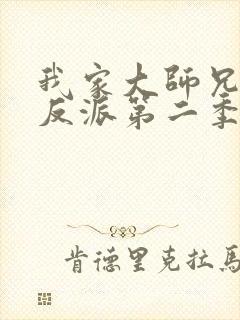 我家大師兄
反派第二季
肯德里克拉馬